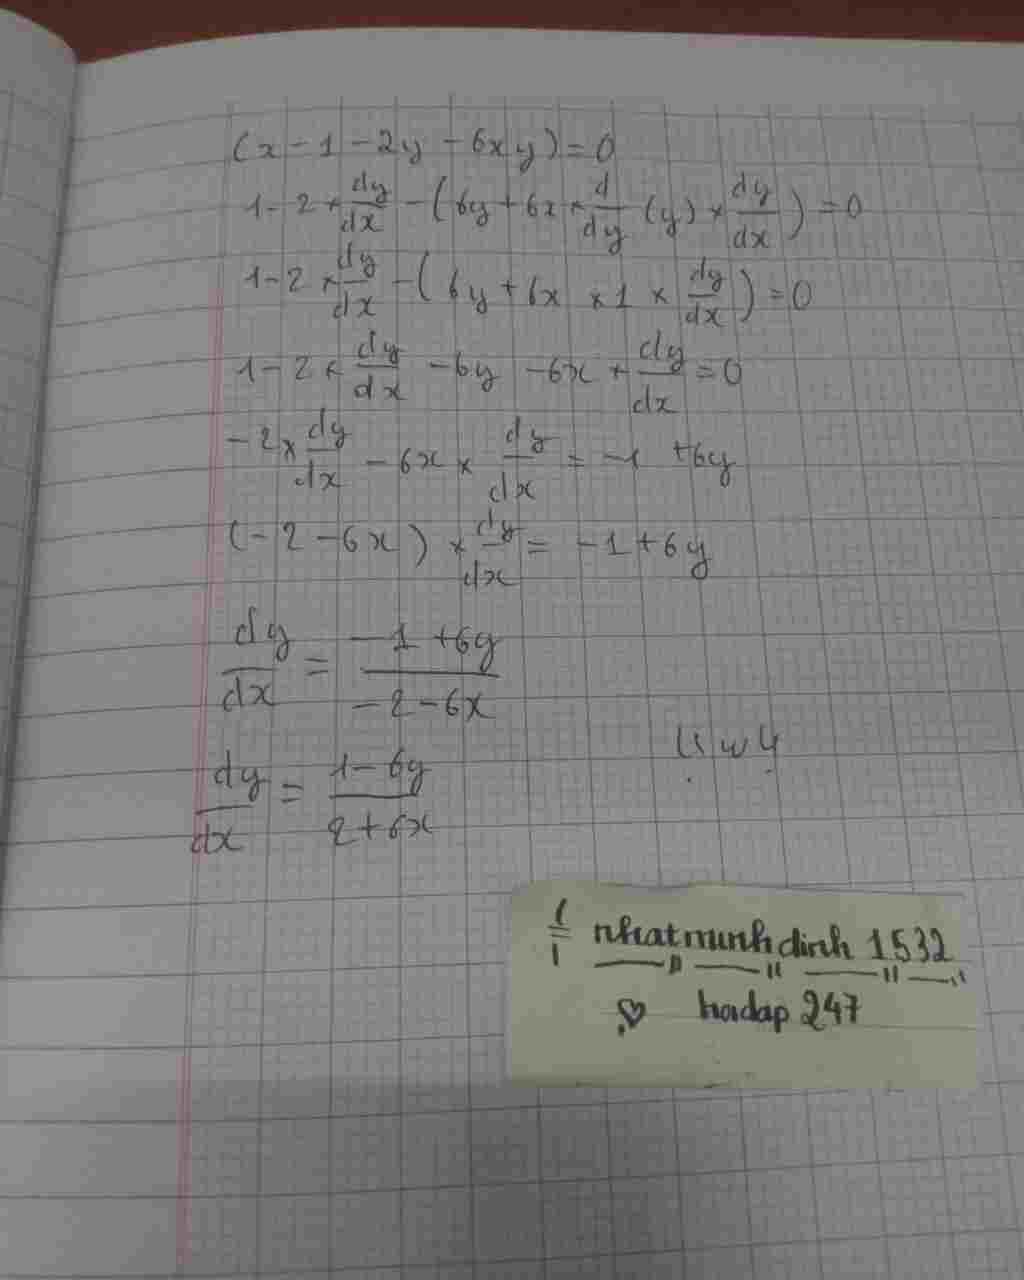 (x - 1 - 2y - 6xy) = 0
1 - 2 × dy/dx - (6y + 6x × d/dy (y) × dy/dx) = 0
1 - 2 × dy/dx - (6y + 6x × 1 × dy/dx) = 0
1 - 2 × dy/dx - 6y - 6x × dy/dx = 0
-2 × dy/dx - 6x × dy/dx = -1 + 6y
(-2 - 6x) × dy/dx = -1 + 6y
dy/dx = (-1 + 6y)/(-2 - 6x)
dy/dx = (1 - 6y)/(2 + 6x)
nhatminhdinh 1532
hoidap 247